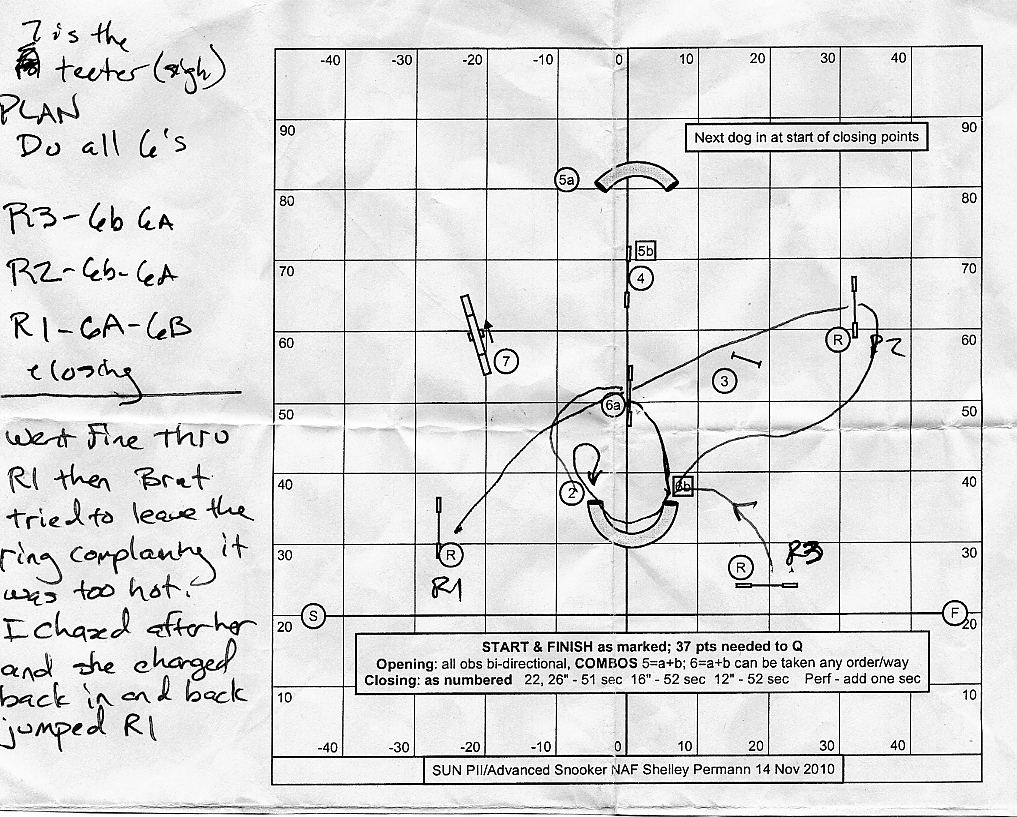 7 is the
teeter (sigh)
PLAN
Do all 6's
R3-6b 6A
R2-6b-6A
R1-6A-6B
closing
went fine thru
R1 then Brat
tried to leave the
ring complaning it
was too hot.
I chased after her
and she charged
back in and back
jumped R1
-40 -30 -20 -10 0 10 20 30 40
90 90
Next dog in at start of closing points
5a
80 80
5b
70 70
4
60 60
7
R R2
3
50 50
6a
40 40
2
6b
30 30
R
R1
R R3
20 20
S F
START & FINISH as marked; 37 pts needed to Q
Opening: all obs bi-directional, COMBOS 5=a+b; 6=a+b can be taken any order/way
Closing: as numbered 22, 26" - 51 sec 16" - 52 sec 12" - 52 sec Perf - add one sec
10 10
-40 -30 -20 -10 0 10 20 30 40
SUN PII/Advanced Snooker NAF Shelley Permann 14 Nov 2010